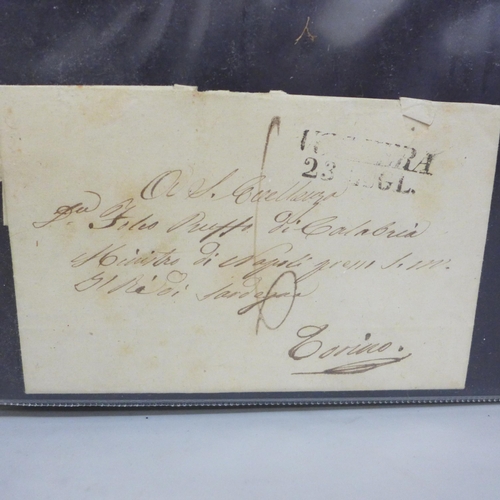 VOGHERA
23 LUGL.
A S. Eccellenza
Ruffo di Calabria
Ministro di Napoli press S. M.
Il Re di Sardegna
Torino.